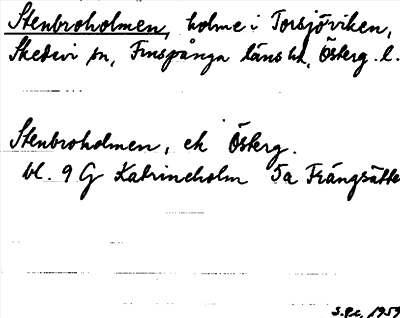 Stenbroholmen, holme i Torsjöviken,
Skedevi sn, Finspånga läns hd, Österg. l.
Stenbroholmen, ek Österg.
bl. 9 G Katrineholm 5a Frängsätter
1959